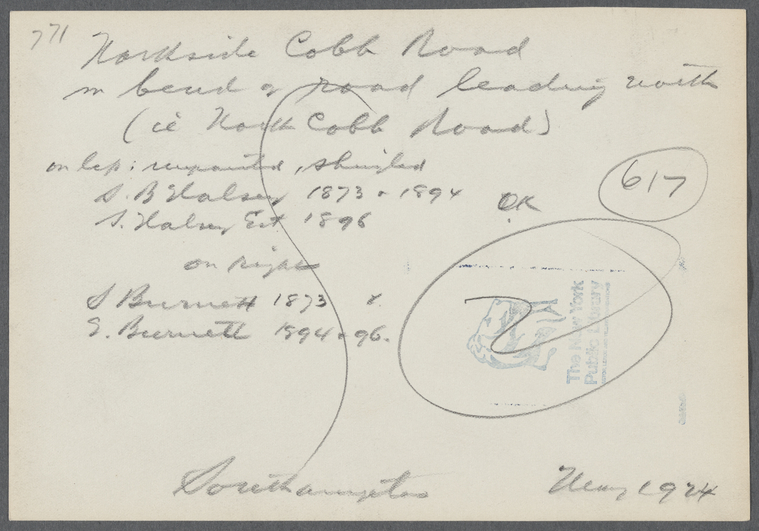 771
Northside Cobb Road
in bend of road leading north
(ie North Cobb Road)
on left: unpainted, shingled
S. B Halsey 1873 + 1894 OK
S. Halsey Est 1896
617
on right
S Burnett 1873 &
E. Burnett 1894 + 96.
The New York
Public Library
Southampton May 1924